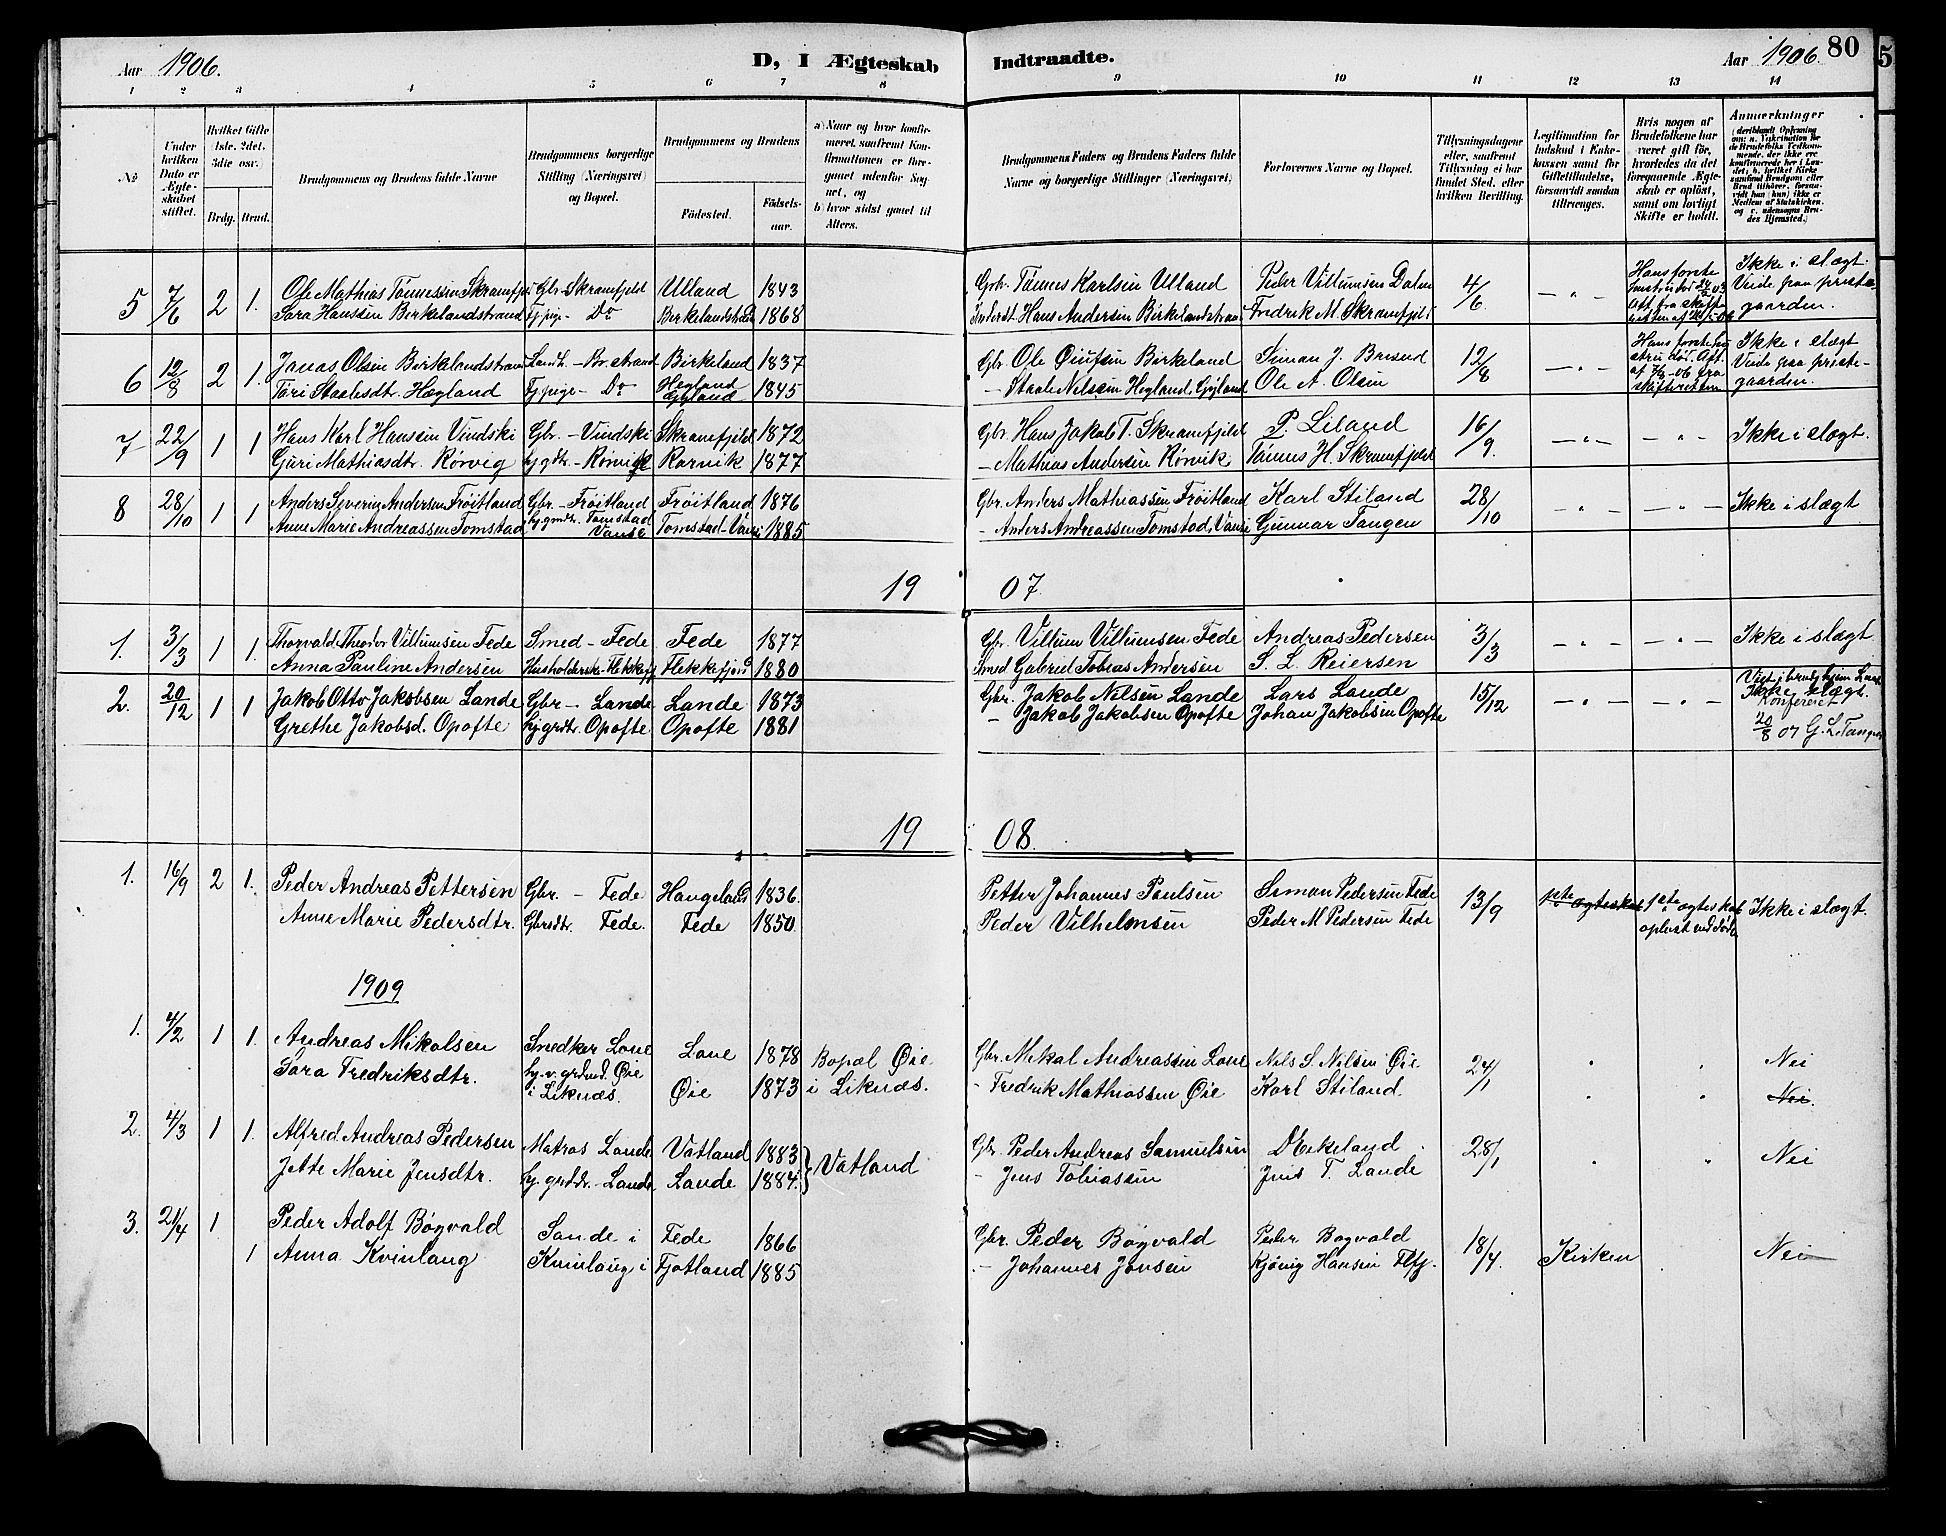 Aar 1906.
D, I Ægteskab Indtraadte.
Aar 1906. 80
5
1 2 3 4 5 6 7 8 9 10 11 12 13 14
No
Under hvilken Dato er Ægteskabet stiftet.
Hvilket Gifte (1ste, 2det, 3die osv.)
Brdg. Brud.
Brudgommens og Brudens fulde Navne
Brudgommens borgerlige Stilling (Næringsvei) og Bopæl.
Brudgommens og Brudens
Fødested.
Fødselsaar.
a) Naar og hvor konfirmeret, saafremt Konfirmationen er foregaaet udenfor Sognet, og
b) hvor sidst gaaet til Alters.
Brudgommens Faders og Brudens Faders fulde Navne og borgerlige Stillinger (Næringsvei)
Forlovernes Navne og Bopæl.
Tillysningsdagene eller, saafremt Tillysning ei har fundet Sted, efter hvilken Bevilling.
Legitimation for Indskud i Enkekassen samt for Giftetilladelse, forsaavidt saadan tiltrænges.
Hvis nogen af Brudefolkene har været gift før, hvorledes da det foregaaende Ægteskab er opløst, samt om lovligt Skifte er holdt.
Anmerkninger
5 7/6 2 1. Ole Mathias Tønnessen Skranefjeld Gbr. Skranefjeld Ulland 1843 Gbr. Tønnes Karlsen Ulland Peder Villumsen Dalen 4/6 – " – Hans første Ikke i slægt.
Sara Hansen Birkelandstrand Tj.pige – Do Birkelandstrand 1868 Hans Andersen Birkelandstrand Fredrik M. Skranefjeld Viede paa prestegaarden.
6 12/8 2 1. Jonas Olsen Birkelandstrand Landh. – Br. strand Birkeland 1837 Gbr. Ole Øiufsen Birkeland Simon J. Brisud 12/8 – " – Hans første hustru død. Att. af 7/8-06 fra skifteretten Ikke i slægt
Tari Staalesdtr. Hægland Tj.pige – Do Hegland Gyland 1845 – Staale Nilsen Hegland, Gyland Ole A. Olsen Viede paa prestegaarden.
7 22/9 1 1 Hans Karl Hansen Vindski Gbr. – Vindski Skranefjeld 1872 Gbr. Hans Jakob T. Skranefjeld P. Liland 16/9. – " – – " – Ikke i slægt.
Guri Mathiasdtr. Rørvig hj.gdtr. – Rørvig Rørvik 1877 – Mathias Andersen Rørvik Tønnes H. Skranefjeld
8 28/10 1 1 Anders Severin Andersen Frøitland Gbr. – Frøitland Frøitland 1876 Gbr. Anders Mathiassen Frøitland Karl Stiland 28/10 – " – – " – Ikke i slægt
Anne Marie Andreassen Tomstad hj.gmdtr. Tomstad Vanse Tomstad – Vanse 1885 – Anders Andreassen Tomstad, Vanse Gunnar Tangen
19 07.
1. 3/3 1 1. Thorvald Theodor Villumsen Fede Smed – Fede Fede 1877 Gbr. Villum Villumsen Fede Andreas Pedersen 3/3 – " – – " – Ikke i slægt
Anna Pauline Andersen Husholderske Flekkefj. Flekkefjord 1880 Smed Gabriel Tobias Andersen S. L. Reiersen
2. 20/12 1 1 Jakob Otto Jakobsen Lande Gbr – Lande Lande 1873 Gbr. Jakob Nilsen Lande Lars Lande 15/12 – " – – " – Ikke slægt.
Grethe Jakobsd. Opofte hj.grdtr. Opofte Opofte 1881 – Jakob Jakobsen Opofte Johan Jakobsen Opofte Konfereret
20/8 07 G. L. Tangen
19 08.
1. 16/9 2 1. Peder Andreas Pettersen Gbr. – Fede Haugeland 1836. Petter Johannes Paulsen Simon Pedersen Fede 13/9 1ste ægteskab 1ste ægteskab opløst ved døde Ikke i slægt.
Anne Marie Pedersdtr. Gbrsdtr. Fede. Fede 1850. Peder Vilhelmsen Peder M Pedersen Fede
1909
1. 4/2 1 1. Andreas Mikalsen Snedker Lone Lone 1878 Bopæl Øie Gbr. Mikal Andreassen Lone Nils S. Nilsen Øie 24/1 " " Nei
Sara Fredriksdtr. Øie i Liknæs. Øie 1873 i Liknæs. – Fredrik Mathiassen Øie Karl Stiland. " " Nei.
2. 4/3 1 1. Alfred Andreas Pedersen Matros Lande Vatland 1883 Vatland Gbr. Peder Andreas Samuelsen Mekeland 28/1 " " Nei
Jette Marie Jensdtr. hj. grddr. – Lande Lande 1884. – Jens Tobiassen Jens T. Lande
3. 21/4 1 Peder Adolf Bøgvald Sande i Fede 1866 Gbr. Peder Bøgvald Peder Bøgvald 18/4. Kirken Nei
1 Anna Kvinlaug Kvinlaug i Fjotland 1885 – Johannes Jonsen Kjønig Hansen Flfj.